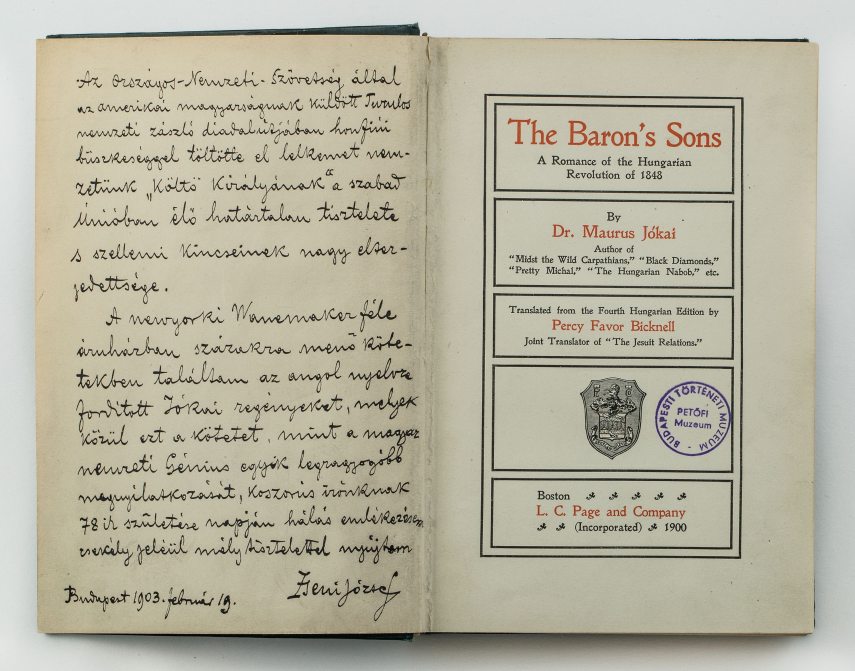 Az Országos-Nemzeti-Szövetség által
az amerikai magyarságnak küldött Turulos
nemzeti zászló diadalútjában honfiúi
büszkeséggel töltötte el lelkemet nem-
zetünk „Költő Királyának" a szabad
Unióban élő határtalan tisztelete
s szellemi kincseinek nagy elter-
jedettsége.
A newyorki Wanemaker féle
áruházban százakra menő köte-
tekben találtam az angol nyelvre
fordított Jókai regényeket, melyek
közül ezt a kötetet, mint a magyar
nemzeti Génius egyik legragyogóbb
megnyilatkozását, koszorús írónknak
78 ik születése napján hálás emlékezésem
csekély jeléül mély tisztelettel nyújtom
Budapest 1903. február 19.
József
The Baron's Sons
A Romance of the Hungarian
Revolution of 1848
By
Dr. Maurus Jókai
Author of
"Midst the Wild Carpathians," "Black Diamonds,"
"Pretty Michal," "The Hungarian Nabob," etc.
Translated from the Fourth Hungarian Edition by
Percy Favor Bicknell
Joint Translator of "The Jesuit Relations."
BUDAPESTI TÖRTÉNETI MUZEUM
PETŐFI
Muzeum
Boston
L. C. Page and Company
(Incorporated) 1900